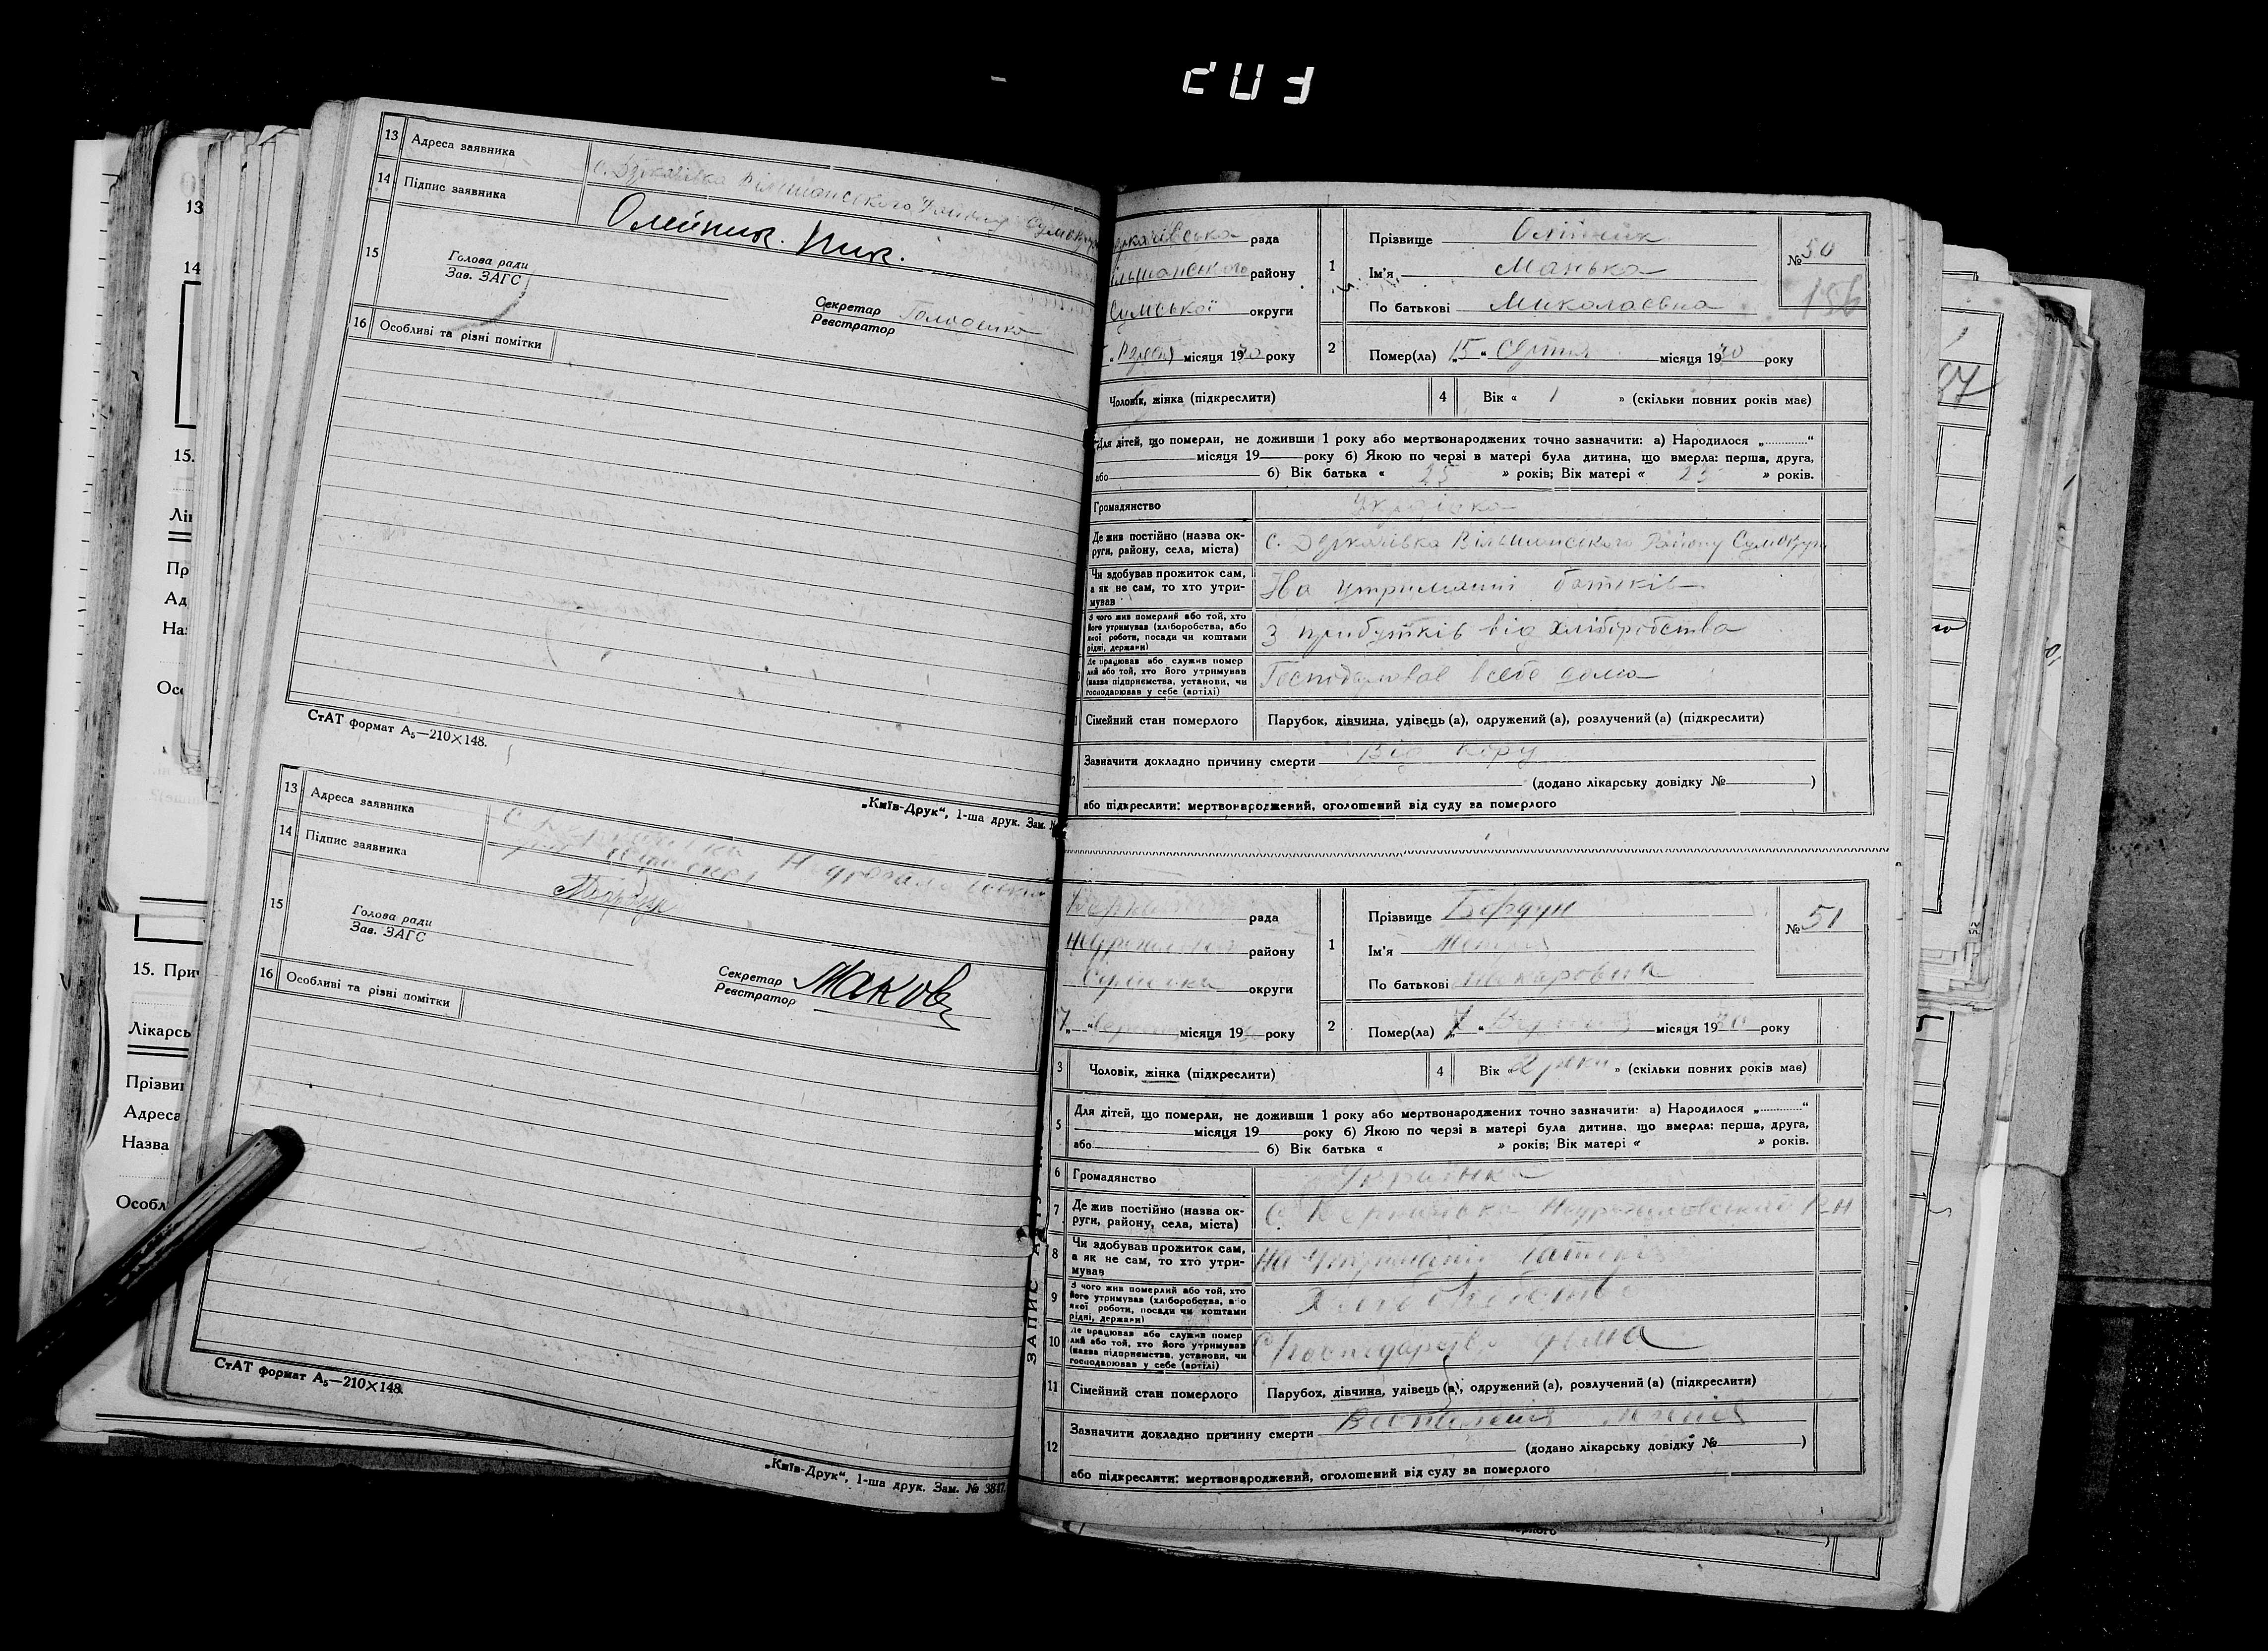 203
13 Адреса заявника с. Деркачівка Вільшанського Району Сумокруги
14 Підпис заявника Олейник. Ник.
15 Голова ради
Зав. ЗАГС
Секретар Голоденко
Реєстратор
16 Особливі та різні помітки
СтАТ формат А₅—210×148.
„Київ-Друк“, 1-ша друк. Зам. №
13 Адреса заявника
14 Підпис заявника Бордун
15 Голова ради
Зав. ЗАГС
Секретар
Реєстратор
16 Особливі та різні помітки
СтАТ формат А₅—210×148.
„Київ-Друк“, 1-ша друк. Зам. № 3847.
ркачівська рада
ільшанського району
Сумської округи
місяця 1930 року
1 Прізвище Олійник
Ім'я Манька
По батькові Миколаєвна
№ 50
156
2 Помер(ла) „15“ Серпня місяця 1930 року
Чоловік, жінка (підкреслити)
4 Вік « 1 » (скільки повних років має)
Для дітей, що померли, не доживши 1 року або мертвонароджених точно зазначити: а) Народилося „ “
місяця 19 року б) Якою по черзі в матері була дитина, що вмерла: перша, друга,
або б) Вік батька « 25 » років; Вік матері « 23 » років.
Громадянство Українка
Де жив постійно (назва ок-
руги, району, села, міста) с. Деркачівка Вільшанського Району Сумокруги
Чи здобував прожиток сам,
а як не сам, то хто утри-
мував На утриманні батьків
З чого жив померлий або той, хто
його утримував (хліборобства, або
якої роботи, посади чи коштами
рідні, держави) З прибутків від хліборобства
Де працював або служив помер
лий або той, хто його утримував
(назва підприємства, установи, чи
господарював у себе (артілі) Господарював в себе дома
Сімейний стан померлого Парубок, дівчина, удівець (а), одружений (а), розлучений (а) (підкреслити)
Зазначити докладно причину смерти Від кору
(додано лікарську довідку № )
або підкреслити: мертвонароджений, оголошений від суду за померлого
рада
району
Сумська округи
7 місяця 193 року
1 Прізвище Бордун
Ім'я
По батькові Макаровна
№ 51
2 Помер(ла) 7 місяця 1930 року
3 Чоловік, жінка (підкреслити)
4 Вік « 2 роки » (скільки повних років має)
5 Для дітей, що померли, не доживши 1 року або мертвонароджених точно зазначити: а) Народилося „ “
місяця 19 року б) Якою по черзі в матері була дитина, що вмерла: перша, друга,
або б) Вік батька « » років; Вік матері « » років.
6 Громадянство Українка
7 Де жив постійно (назва ок-
руги, району, села, міста)
8 Чи здобував прожиток сам,
а як не сам, то хто утри-
мував На
9 З чого жив померлий або той, хто
його утримував (хліборобства, або
якої роботи, посади чи коштами
рідні, держави)
10 Де працював або служив помер
лий або той, хто його утримував
(назва підприємства, установи, чи
господарював у себе (артілі) дома
11 Сімейний стан померлого Парубок, дівчина, удівець (а), одружений (а), розлучений (а) (підкреслити)
12 Зазначити докладно причину смерти
(додано лікарську довідку № )
або підкреслити: мертвонароджений, оголошений від суду за померлого